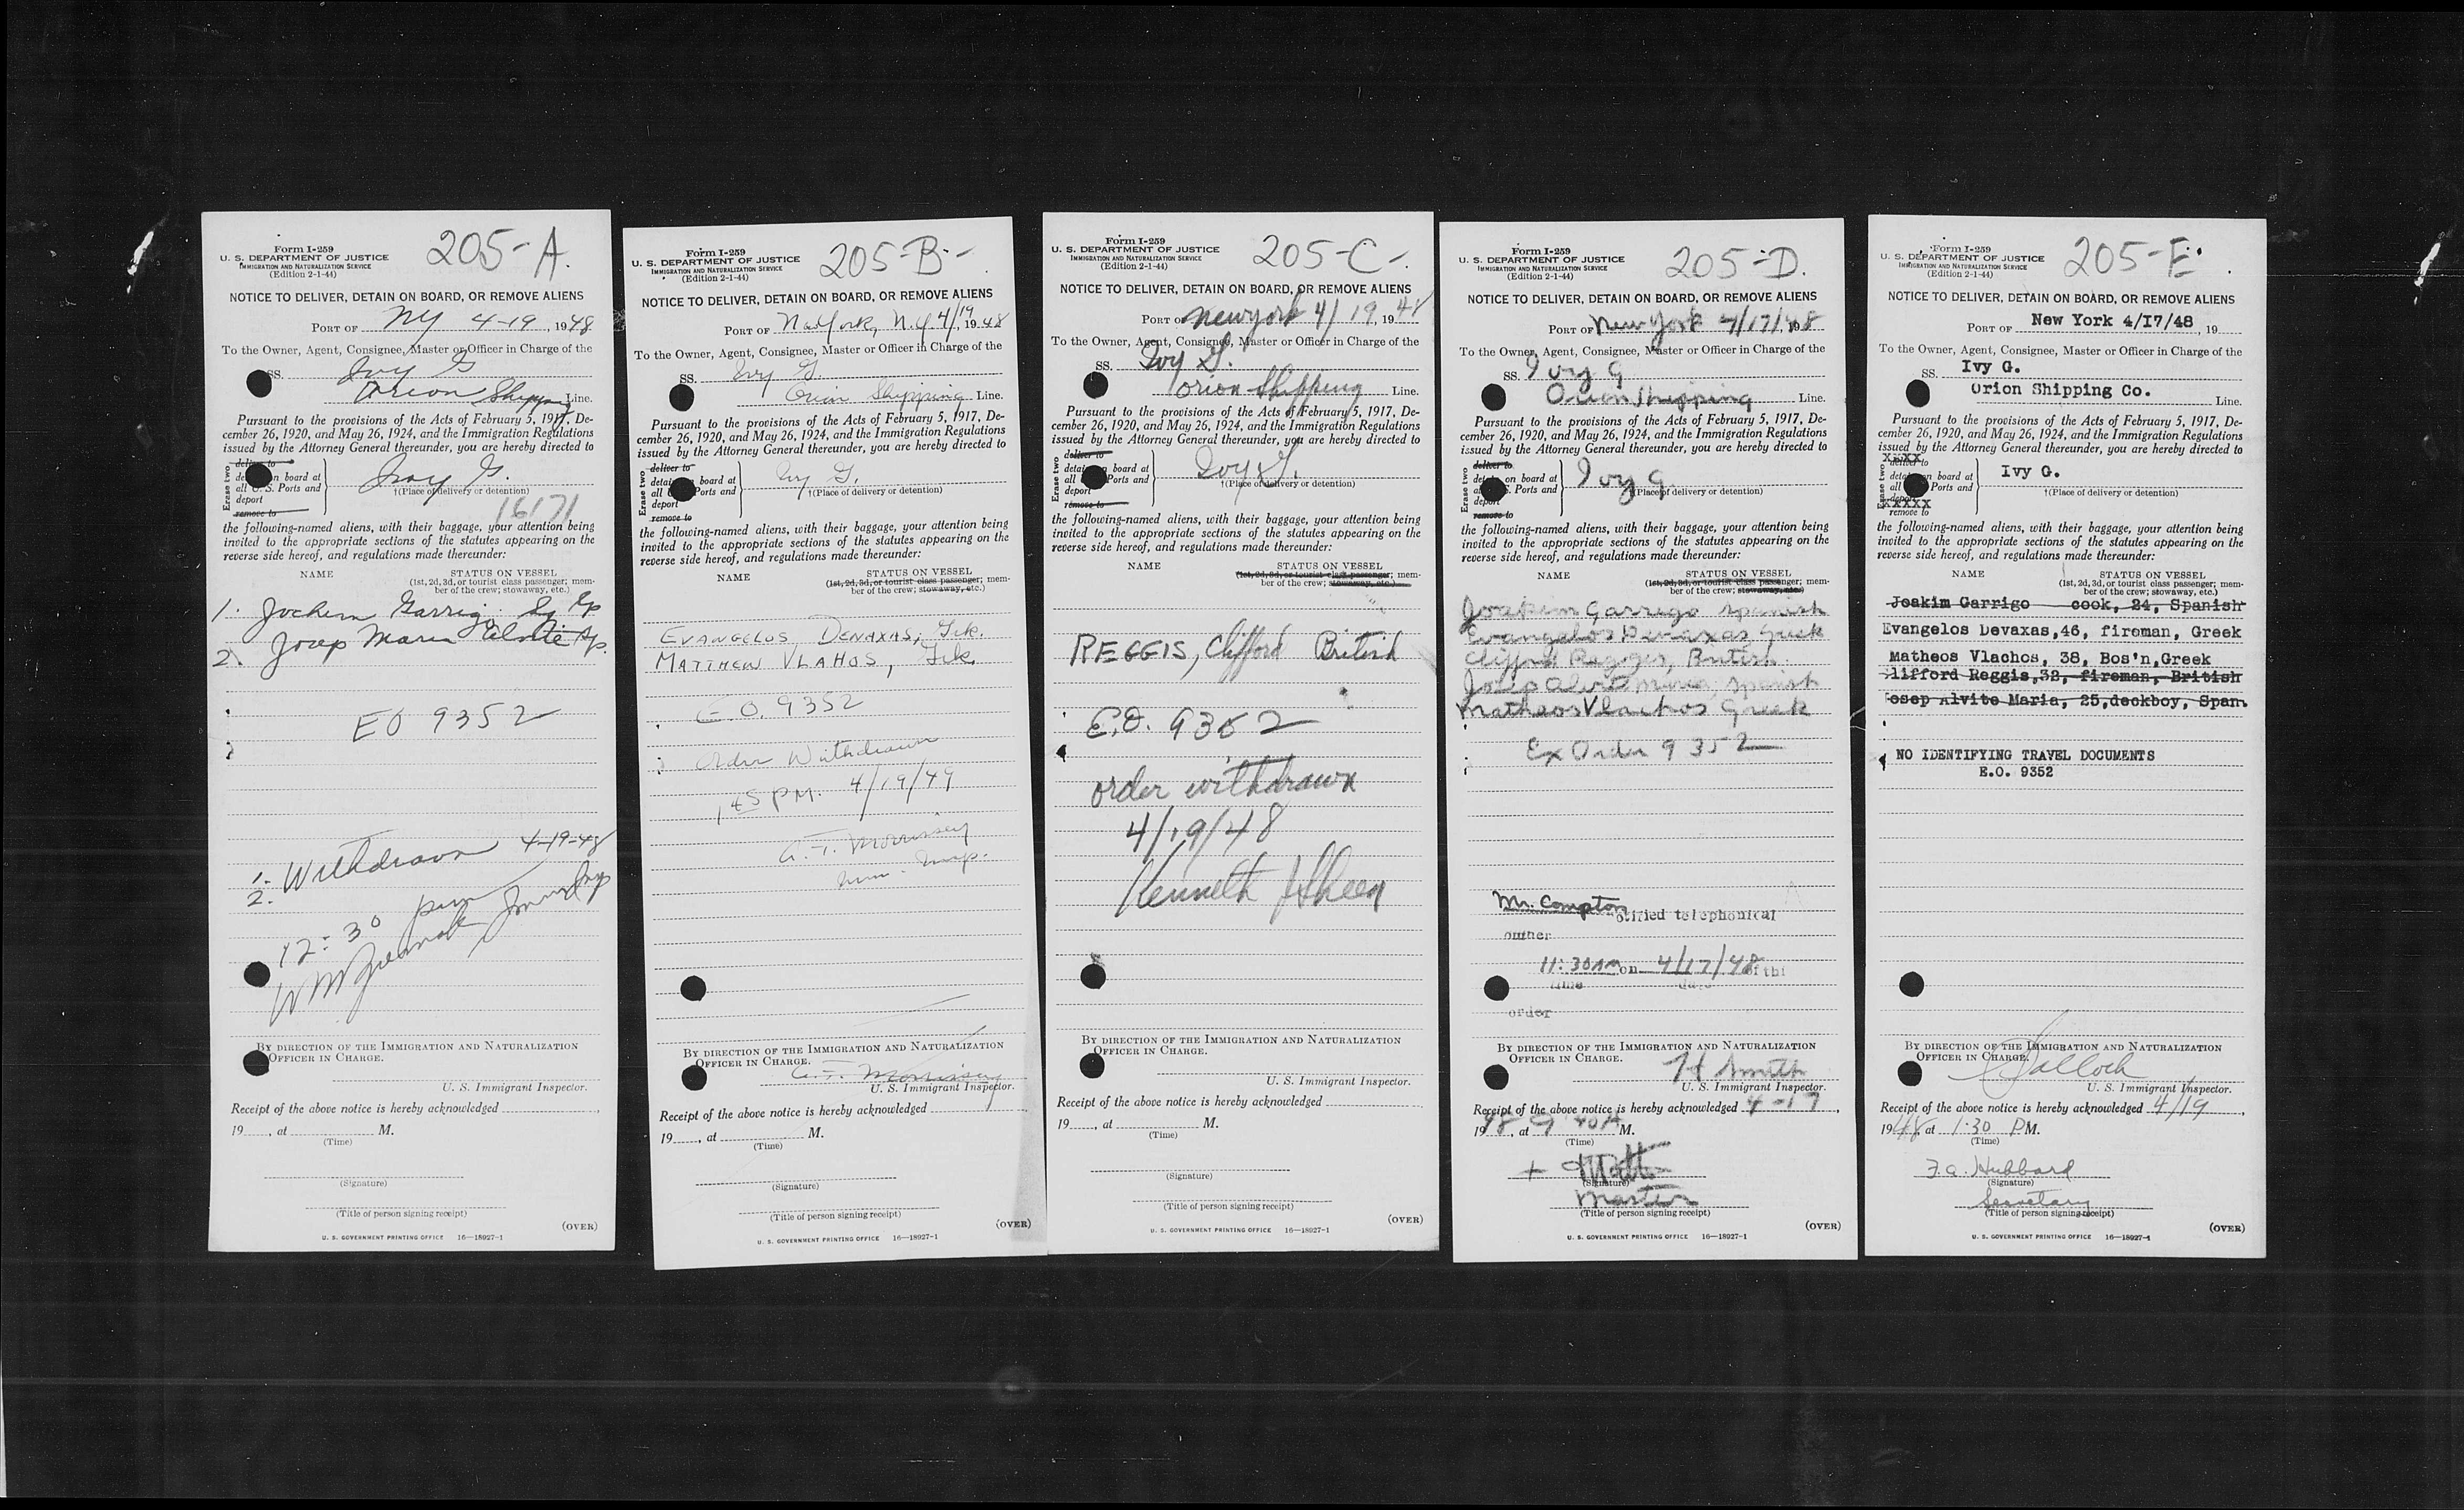 Form I-259
U. S. DEPARTMENT OF JUSTICE
IMMIGRATION AND NATURALIZATION SERVICE
(Edition 2-1-44)
205-A.
NOTICE TO DELIVER, DETAIN ON BOARD, OR REMOVE ALIENS
PORT OF NY 4-19, 1948
To the Owner, Agent, Consignee, Master or Officer in Charge of the
SS. Ivy G
Orion Shipping Line.
Pursuant to the provisions of the Acts of February 5, 1917, De-
cember 26, 1920, and May 26, 1924, and the Immigration Regulations
issued by the Attorney General thereunder, you are hereby directed to
Erase two
deliver to
on board at
all U. S. Ports and
deport
remove to
Ivy G.
†(Place of delivery or detention)
16171
the following-named aliens, with their baggage, your attention being
invited to the appropriate sections of the statutes appearing on the
reverse side hereof, and regulations made thereunder:
NAME STATUS ON VESSEL
(1st, 2d, 3d, or tourist class passenger; mem-
ber of the crew; stowaway, etc.)
1. Jochem Garrigo Sp
2. Josep Maria Alvite Sp.
EO 9352
1. 2. Withdrawn 4-19-48
12:30 pm
BY DIRECTION OF THE IMMIGRATION AND NATURALIZATION
OFFICER IN CHARGE.
U. S. Immigrant Inspector.
Receipt of the above notice is hereby acknowledged
19, at M.
(Time)
(Signature)
(Title of person signing receipt)
(OVER)
U. S. GOVERNMENT PRINTING OFFICE 16—18927-1
Form I-259
U. S. DEPARTMENT OF JUSTICE
IMMIGRATION AND NATURALIZATION SERVICE
(Edition 2-1-44)
205-B-
NOTICE TO DELIVER, DETAIN ON BOARD, OR REMOVE ALIENS
PORT OF New York, N.Y. 4/19, 1948
To the Owner, Agent, Consignee, Master or Officer in Charge of the
SS. Ivy G.
Orion Shipping Line.
Pursuant to the provisions of the Acts of February 5, 1917, De-
cember 26, 1920, and May 26, 1924, and the Immigration Regulations
issued by the Attorney General thereunder, you are hereby directed to
Erase two
deliver to
board at
all Ports and
deport
remove to
Ivy G.
†(Place of delivery or detention)
the following-named aliens, with their baggage, your attention being
invited to the appropriate sections of the statutes appearing on the
reverse side hereof, and regulations made thereunder:
NAME STATUS ON VESSEL
(1st, 2d, 3d, or tourist class passenger; mem-
ber of the crew; stowaway, etc.)
EVANGELOS DENAXAS, Grk.
MATTHEW VLAHOS, Grk.
E.O. 9352
Order Withdrawn
1 45 PM. 4/19/49
A. T. Morrissey
Imm. Insp.
BY DIRECTION OF THE IMMIGRATION AND NATURALIZATION
OFFICER IN CHARGE.
A. T. Morrissey
U. S. Immigrant Inspector.
Receipt of the above notice is hereby acknowledged
19, at M.
(Time)
(Signature)
(Title of person signing receipt)
(OVER)
U. S. GOVERNMENT PRINTING OFFICE 16—18927-1
Form I-259
U. S. DEPARTMENT OF JUSTICE
IMMIGRATION AND NATURALIZATION SERVICE
(Edition 2-1-44)
205-C-.
NOTICE TO DELIVER, DETAIN ON BOARD, OR REMOVE ALIENS
PORT OF New York 4/19, 1948
To the Owner, Agent, Consignee, Master or Officer in Charge of the
SS. Ivy G.
Orion Shipping Line.
Pursuant to the provisions of the Acts of February 5, 1917, De-
cember 26, 1920, and May 26, 1924, and the Immigration Regulations
issued by the Attorney General thereunder, you are hereby directed to
Erase two
deliver to
board at
all Ports and
deport
remove to
Ivy G.
†(Place of delivery or detention)
the following-named aliens, with their baggage, your attention being
invited to the appropriate sections of the statutes appearing on the
reverse side hereof, and regulations made thereunder:
NAME STATUS ON VESSEL
(1st, 2d, 3d, or tourist class passenger; mem-
ber of the crew; stowaway, etc.)
REGGIS, Clifford British
E.O. 9352
order withdrawn
4/19/48
Kenneth J Sheen
BY DIRECTION OF THE IMMIGRATION AND NATURALIZATION
OFFICER IN CHARGE.
U. S. Immigrant Inspector.
Receipt of the above notice is hereby acknowledged
19, at M.
(Time)
(Signature)
(Title of person signing receipt)
(OVER)
U. S. GOVERNMENT PRINTING OFFICE 16—18927-1
Form I-259
U. S. DEPARTMENT OF JUSTICE
IMMIGRATION AND NATURALIZATION SERVICE
(Edition 2-1-44)
205-D.
NOTICE TO DELIVER, DETAIN ON BOARD, OR REMOVE ALIENS
PORT OF New York 4/17/48
To the Owner, Agent, Consignee, Master or Officer in Charge of the
SS. Ivy G
Orion Shipping Line.
Pursuant to the provisions of the Acts of February 5, 1917, De-
cember 26, 1920, and May 26, 1924, and the Immigration Regulations
issued by the Attorney General thereunder, you are hereby directed to
Erase two
deliver to
on board at
S. Ports and
deport
remove to
Ivy G.
†(Place of delivery or detention)
the following-named aliens, with their baggage, your attention being
invited to the appropriate sections of the statutes appearing on the
reverse side hereof, and regulations made thereunder:
NAME STATUS ON VESSEL
(1st, 2d, 3d, or tourist class passenger; mem-
ber of the crew; stowaway, etc.)
Joakim Garrigo Spanish
Evangelos Devaxas Greek
Clifford Reggis, British.
Josep Alvite Maria, Spanish
Matheos Vlachos Greek
Ex Order 9352
Mr. Compton otified telephonical
11:30 AM on 4/17/48 of thi
time date
order
BY DIRECTION OF THE IMMIGRATION AND NATURALIZATION
OFFICER IN CHARGE.
H Smith
U. S. Immigrant Inspector.
Receipt of the above notice is hereby acknowledged 4-17,
1948, at 9 40 A M.
(Time)
(Signature)
Master
(Title of person signing receipt)
(OVER)
U. S. GOVERNMENT PRINTING OFFICE 16—18927-1
Form I-259
U. S. DEPARTMENT OF JUSTICE
IMMIGRATION AND NATURALIZATION SERVICE
(Edition 2-1-44)
205-E.
NOTICE TO DELIVER, DETAIN ON BOARD, OR REMOVE ALIENS
PORT OF New York 4/I7/48, 19
To the Owner, Agent, Consignee, Master or Officer in Charge of the
SS. Ivy G.
Orion Shipping Co. Line.
Pursuant to the provisions of the Acts of February 5, 1917, De-
cember 26, 1920, and May 26, 1924, and the Immigration Regulations
issued by the Attorney General thereunder, you are hereby directed to
Erase two
deliver to
on board at
all Ports and
deport
XXXXX
remove to
Ivy G.
†(Place of delivery or detention)
the following-named aliens, with their baggage, your attention being
invited to the appropriate sections of the statutes appearing on the
reverse side hereof, and regulations made thereunder:
NAME STATUS ON VESSEL
(1st, 2d, 3d, or tourist class passenger; mem-
ber of the crew; stowaway, etc.)
Joakim Garrigo cook, 24, Spanish
Evangelos Devaxas,46, fireman, Greek
Matheos Vlachos, 38, Bos'n,Greek
lifford Reggis,32, fireman, British
osep Alvite Maria, 25,deckboy, Span.
NO IDENTIFYING TRAVEL DOCUMENTS
E.O. 9352
BY DIRECTION OF THE IMMIGRATION AND NATURALIZATION
OFFICER IN CHARGE.
U. S. Immigrant Inspector.
Receipt of the above notice is hereby acknowledged 4/19,
1948 at 1:30 PM.
(Time)
F. A. Hubbard
(Signature)
Secretary
(Title of person signing receipt)
(OVER)
U. S. GOVERNMENT PRINTING OFFICE 16—18927-1